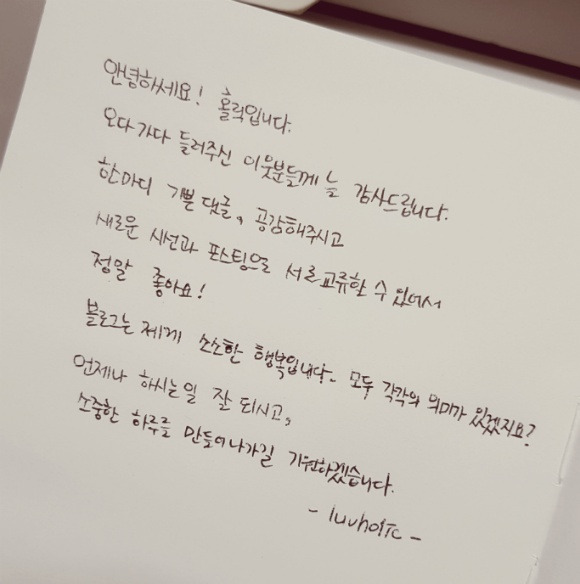 안녕하세요! 홀릭입니다.
오다가다 들러주신 이웃분들께 늘 감사드립니다.
한마디 기쁜 댓글, 공감해주시고
새로운 시선과 포스팅으로 서로 교류할 수 있어서
정말 좋아요!
블로그는 제게 소소한 행복입니다. 모두 각각의 의미가 있겠지요?
언제나 하시는 일 잘 되시고,
소중한 하루를 만들어나가길 기원하겠습니다.
- luvholic -